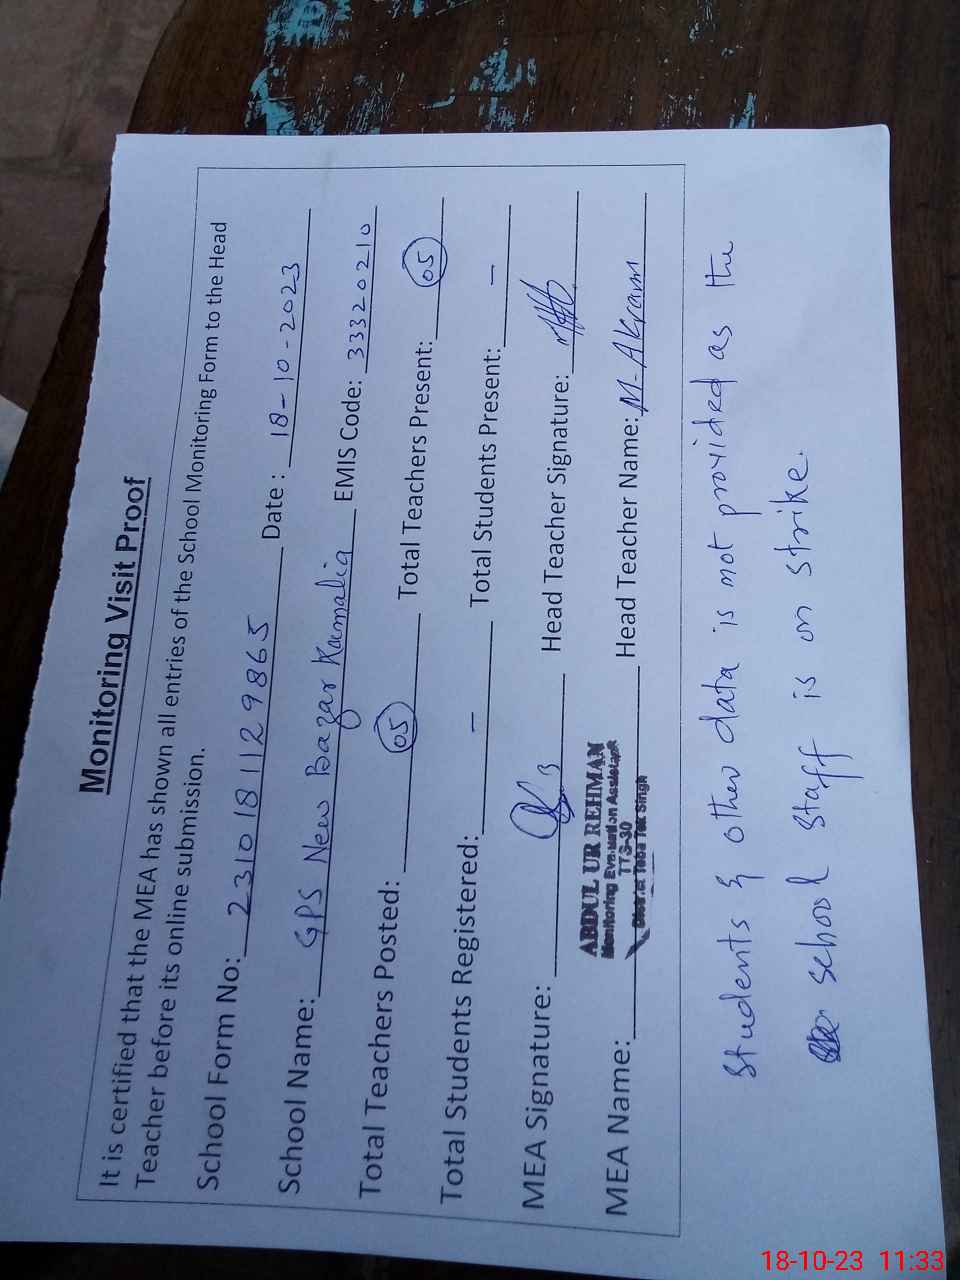 Monitoring Visit Proof
It is certified that the MEA has shown all entries of the School Monitoring Form to the Head
Teacher before its online submission.
School Form No: 231018112 9865 Date : 18-10-2023
School Name: GPS New Bazar Kamalia EMIS Code: 33320210
Total Teachers Posted: 05 Total Teachers Present: 05
Total Students Registered: - Total Students Present: -
MEA Signature: Head Teacher Signature:
MEA Name: Head Teacher Name: M-Akram
ABDUL UR REHMAN
Monitoring Evaluation Assistant
TTS-30
District Toba Tek Singh
Students & other data is not provided as the
school staff is on strike.
18-10-23 11:33